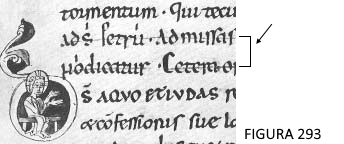 tormentum · Qui tecu
adſ petrū · Admiſſaſ
p̄dicatur · Cetera
S̄ AQVO ETIVDAS
&cōfeſſioniſ ſue
FIGURA 293